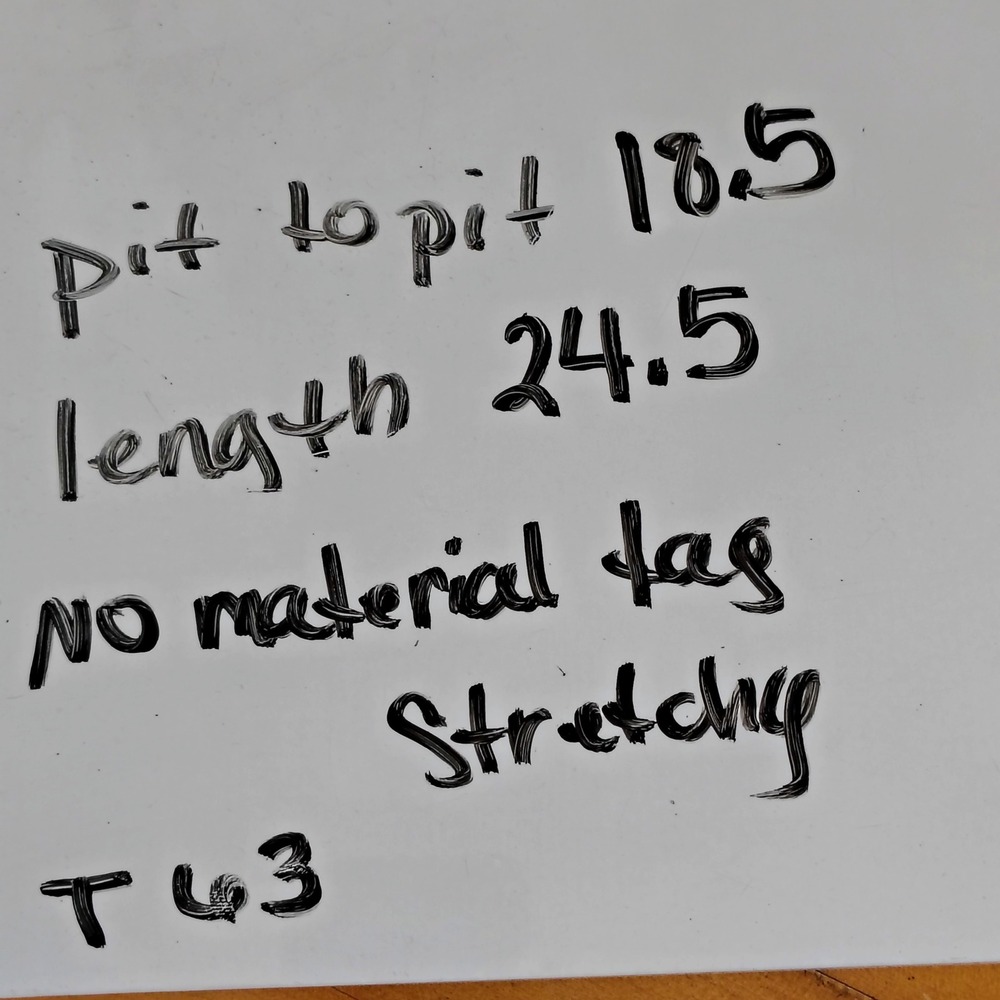 pit to pit 18.5
length 24.5
No material tag
Stretchy
T 63